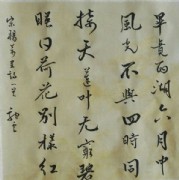 毕竟西湖六月中
風光不與四時同
接天莲叶无穷碧
映日荷花别樣红
宋楊萬里詩一首